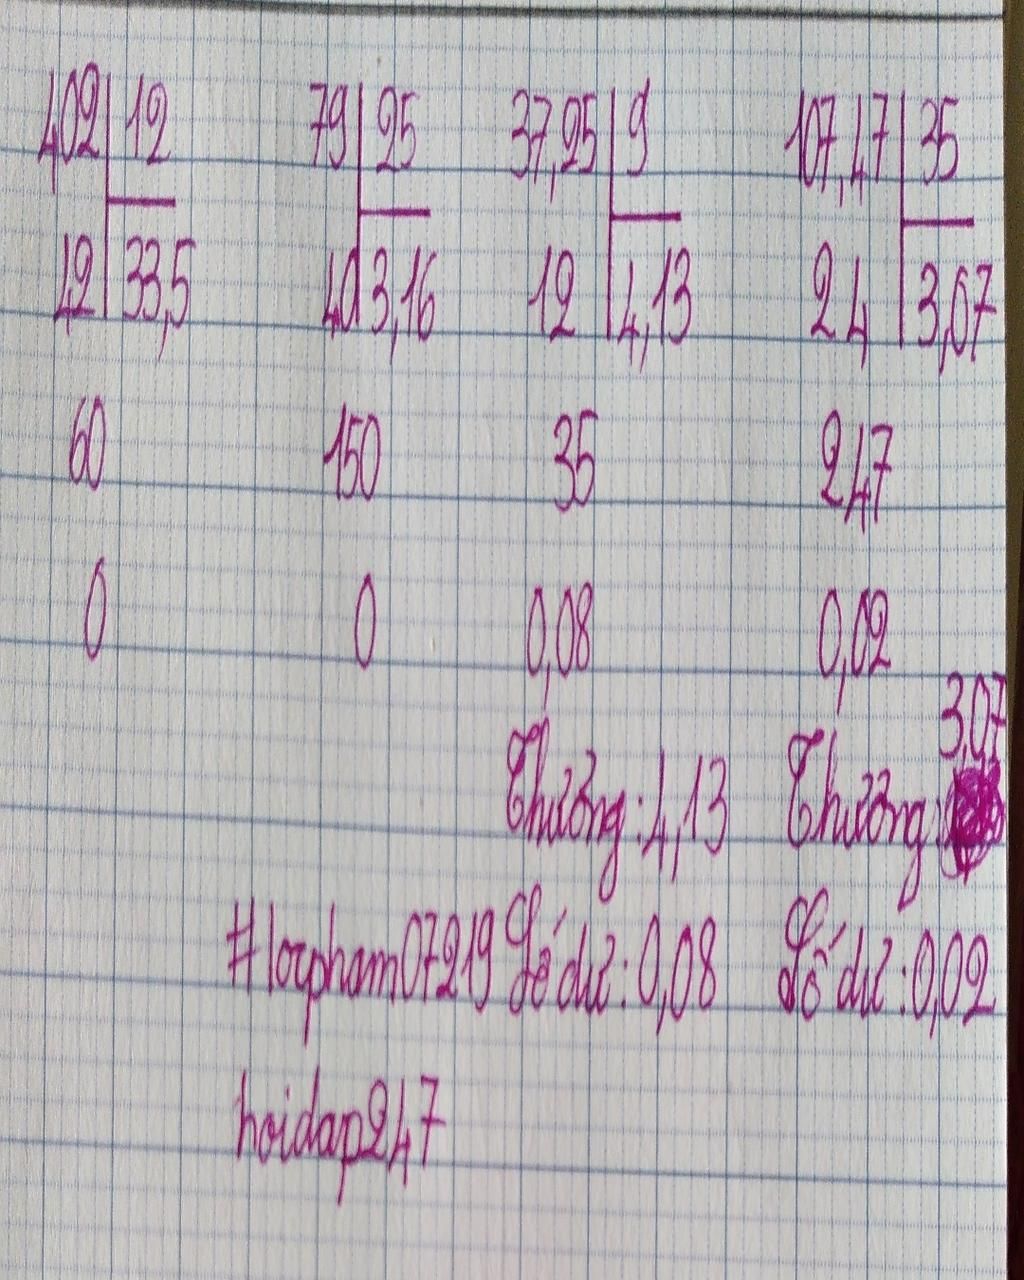 402 12 79 25 37,25 9 107,47 35
42 33,5 40 3,16 12 4,13 24 3,07
60 150 35 247
0 0 0,08 0,02
3,07
Thương: 4,13 Thương:
#locpham07219 Số dư: 0,08 Số dư: 0,02
hoidap247